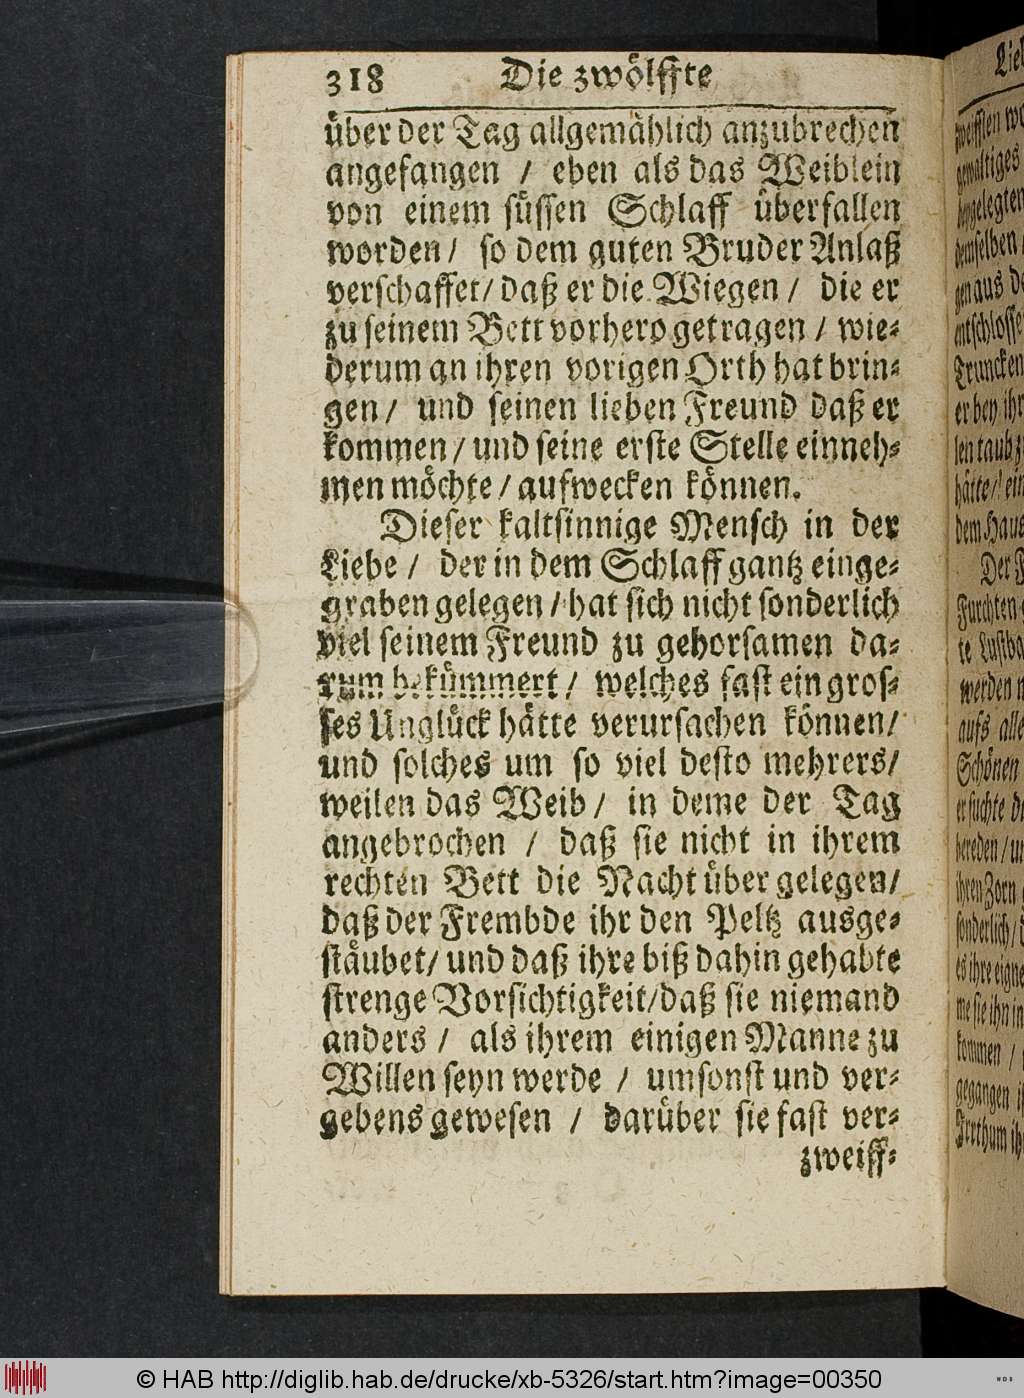 318 Die zwölffte
über der Tag allgemählich anzubrechen
angefangen / eben als das Weiblein
von einem süssen Schlaff überfallen
worden / so dem guten Bruder Anlaß
verschaffet / daß er die Wiegen / die er
zu seinem Bett vorhero getragen / wie-
derum an ihren vorigen Orth hat brin-
gen / und seinen lieben Freund daß er
kommen / und seine erste Stelle einneh-
men möchte / aufwecken können.
Dieser kaltsinnige Mensch in der
Liebe / der in dem Schlaff gantz einge-
graben gelegen / hat sich nicht sonderlich
viel seinem Freund zu gehorsamen da-
rum bekümmert / welches fast ein gros-
ses Unglück hätte verursachen können /
und solches um so viel desto mehrers /
weilen das Weib / in deme der Tag
angebrochen / daß sie nicht in ihrem
rechten Bett die Nacht über gelegen /
daß der Frembde ihr den Peltz ausge-
stäubet / und daß ihre biß dahin gehabte
strenge Vorsichtigkeit / daß sie niemand
anders / als ihrem einigen Manne zu
Willen seyn werde / umsonst und ver-
gebens gewesen / darüber sie fast ver-
zweiff-
gewaltiges
demselben
gen aus
Truncken
er bey ihr
hätte / ein
dem Hause
Der
Furchten
te Lustba
werden
aufs alle
Schönen
er suchte
bereden /
ihren Zorn
sonderlich /
es ihre eigne
me sie ihn in
kommen /
gegangen
Irrthum
© HAB http://diglib.hab.de/drucke/xb-5326/start.htm?image=00350